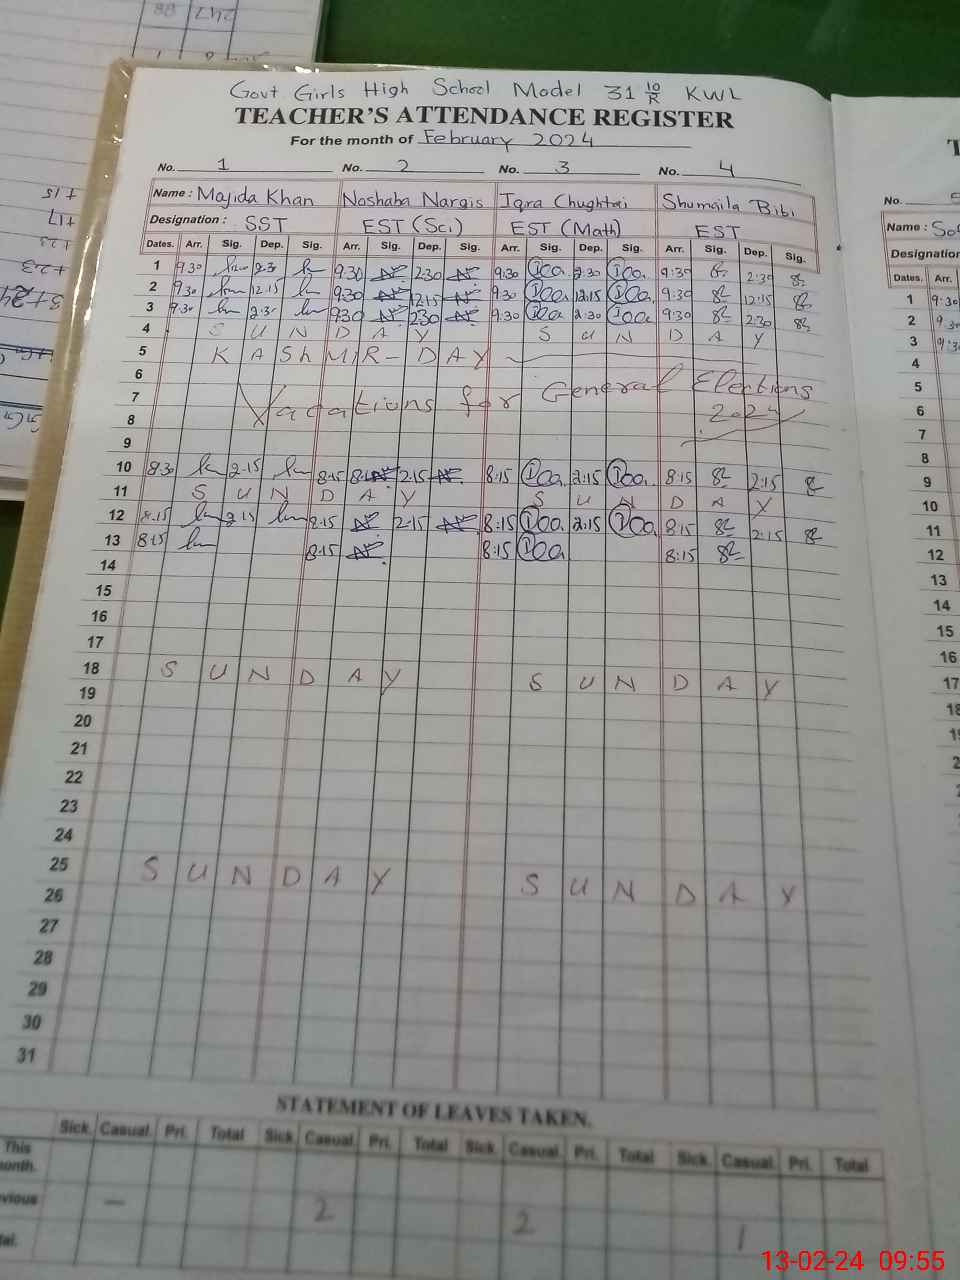 Govt Girls High School Model 31 10/R KWL
TEACHER'S ATTENDANCE REGISTER
For the month of February 2024
No. 1 No. 2 No. 3 No. 4
Name : Majida Khan Noshaba Nargis Iqra Chughtai Shumaila Bibi
Designation : SST EST (Sci) EST (Math) EST
Dates. Arr. Sig. Dep. Sig. Arr. Sig. Dep. Sig. Arr. Sig. Dep. Sig. Arr. Sig. Dep. Sig.
1 9:30 2:30 9:30 2:30 9:30 2:30 9:30 2:30
2 9:30 12:15 9:30 12:15 9:30 12:15 9:30 12:15
3 9:30 2:30 9:30 2:30 9:30 2:30 9:30 2:30
4 S U N D A Y S U N D A Y
5 KASHMIR-DAY
6
7 Vacations for General Elections
8 2024
9
10 8:30 2:15 8:15 2:15 8:15 2:15 8:15 2:15
11 S U N D A Y S U N D A Y
12 8:15 2:15 8:15 2:15 8:15 2:15 8:15 2:15
13 8:15 8:15 8:15 8:15
14
15
16
17
18 S U N D A Y S U N D A Y
19
20
21
22
23
24
25 S U N D A Y S U N D A Y
26
27
28
29
30
31
STATEMENT OF LEAVES TAKEN.
Sick. Casual. Pri. Total Sick. Casual. Pri. Total Sick. Casual. Pri. Total Sick. Casual. Pri. Total
This
onth.
vious — 2 2 1
tal.
No.
Name :
Designation
Dates. Arr.
1 9:30
2 9:30
3 9:30
4
5
6
7
8
9
10
11
12
13
14
15
16
17
18
13-02-24 09:55